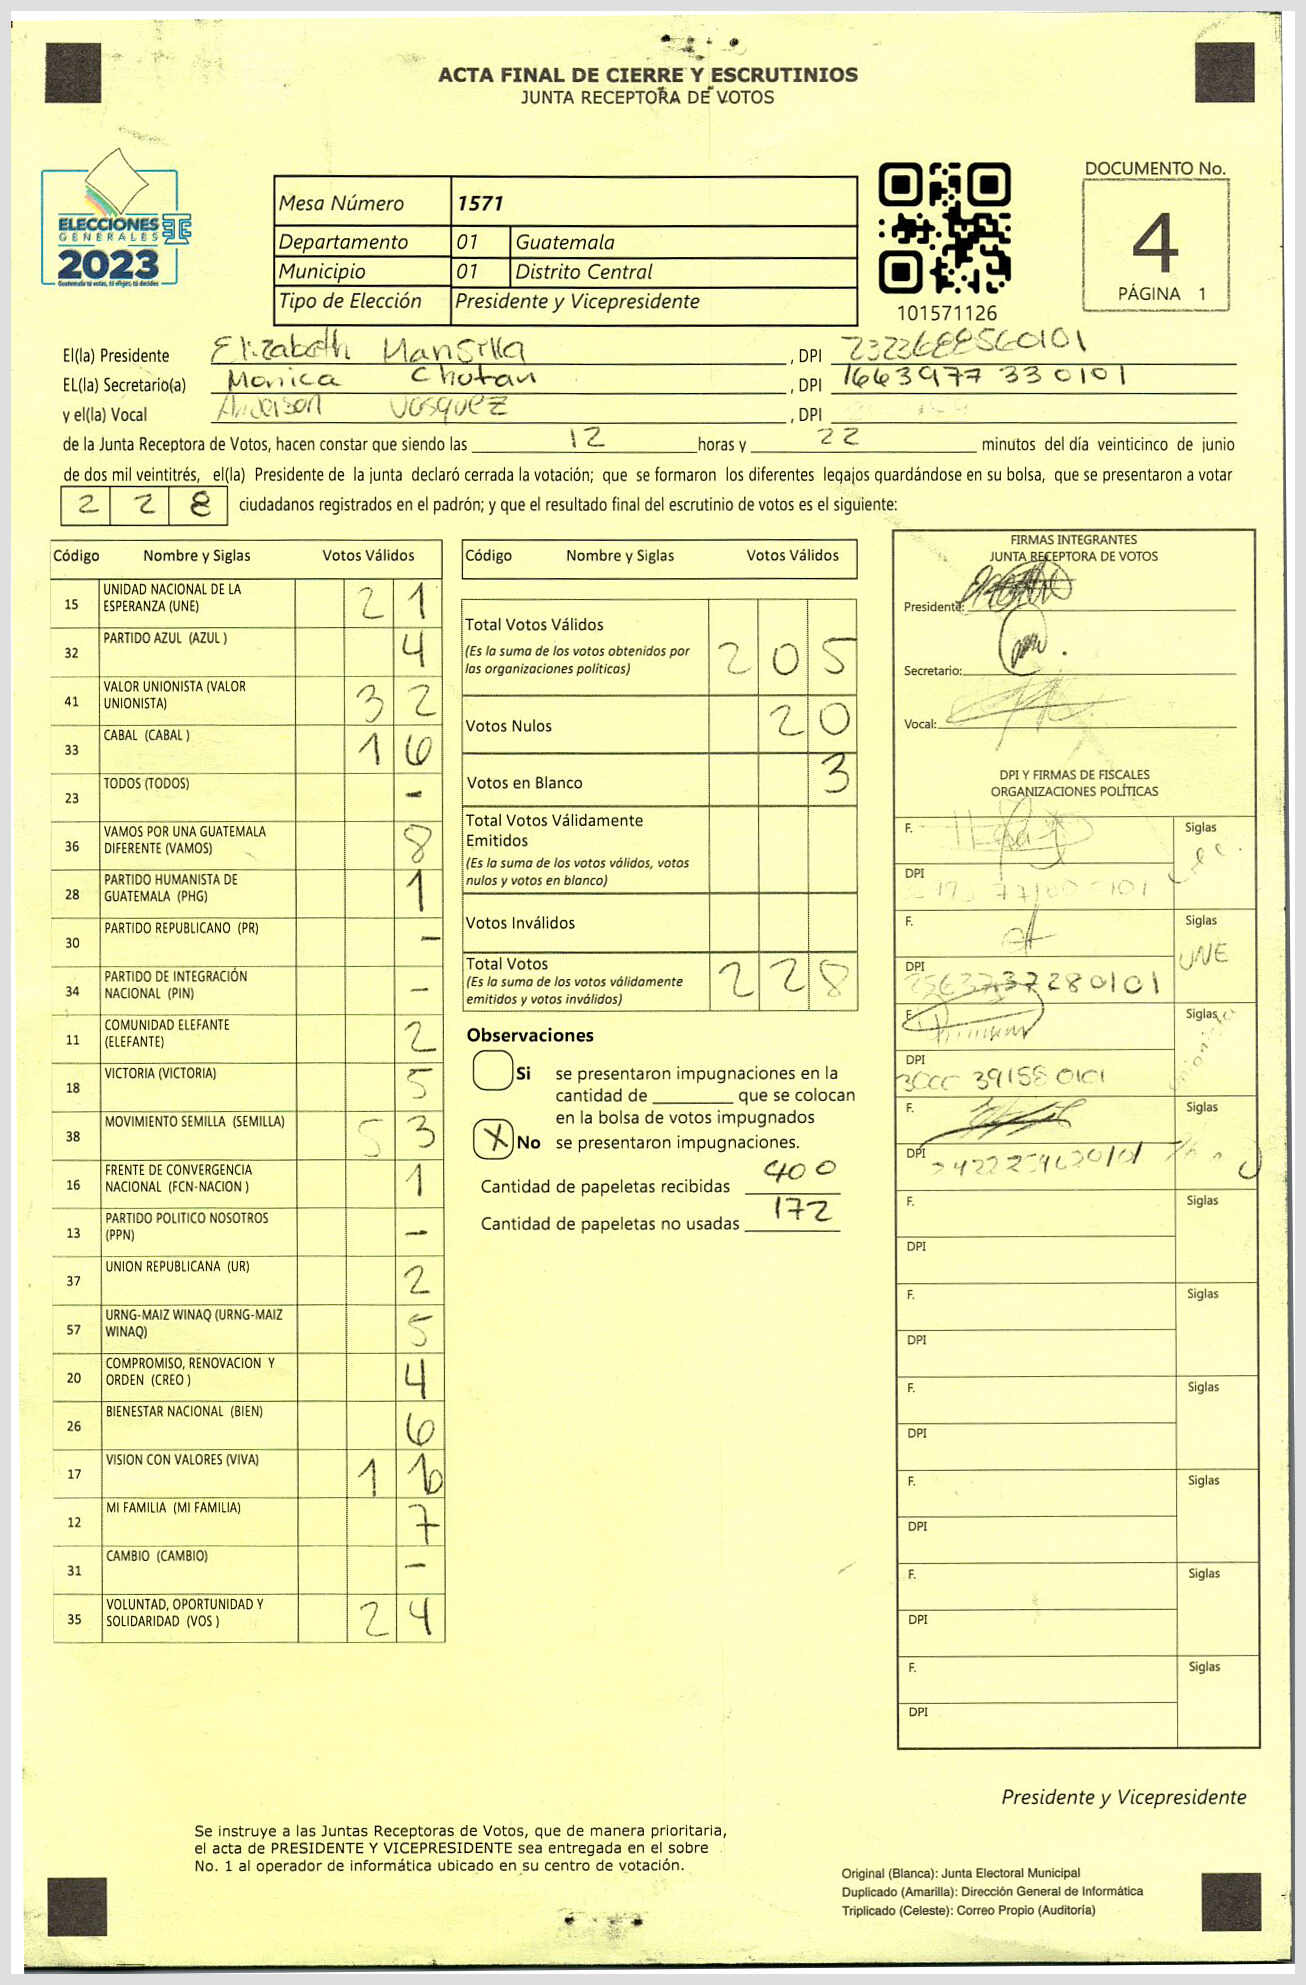 ACTA FINAL DE CIERRE Y ESCRUTINIOS
JUNTA RECEPTORA DE VOTOS
ELECCIONES
GENERALES
2023
Guatemala tú votas, tú eliges, tú decides
Mesa Número 1571
Departamento 01 Guatemala
Municipio 01 Distrito Central
Tipo de Elección Presidente y Vicepresidente
101571126
DOCUMENTO No.
4
PÁGINA 1
El(la) Presidente Elizabeth Mansilla , DPI
EL(la) Secretario(a) Monica Chutan , DPI 1663977 330101
y el(la) Vocal Anderson Vasquez , DPI
de la Junta Receptora de Votos, hacen constar que siendo las 12 horas y 22 minutos del día veinticinco de junio
de dos mil veintitrés, el(la) Presidente de la junta declaró cerrada la votación; que se formaron los diferentes legajos guardándose en su bolsa, que se presentaron a votar
2 2 8 ciudadanos registrados en el padrón; y que el resultado final del escrutinio de votos es el siguiente:
Código Nombre y Siglas Votos Válidos
15 UNIDAD NACIONAL DE LA ESPERANZA (UNE) 2 1
32 PARTIDO AZUL (AZUL ) 4
41 VALOR UNIONISTA (VALOR UNIONISTA) 3 2
33 CABAL (CABAL ) 1 6
23 TODOS (TODOS) -
36 VAMOS POR UNA GUATEMALA DIFERENTE (VAMOS) 8
28 PARTIDO HUMANISTA DE GUATEMALA (PHG) 1
30 PARTIDO REPUBLICANO (PR) -
34 PARTIDO DE INTEGRACIÓN NACIONAL (PIN) -
11 COMUNIDAD ELEFANTE (ELEFANTE) 2
18 VICTORIA (VICTORIA) 5
38 MOVIMIENTO SEMILLA (SEMILLA) 5 3
16 FRENTE DE CONVERGENCIA NACIONAL (FCN-NACION ) 1
13 PARTIDO POLITICO NOSOTROS (PPN) -
37 UNION REPUBLICANA (UR) 2
57 URNG-MAIZ WINAQ (URNG-MAIZ WINAQ) 5
20 COMPROMISO, RENOVACION Y ORDEN (CREO ) 4
26 BIENESTAR NACIONAL (BIEN) 6
17 VISION CON VALORES (VIVA) 1
12 MI FAMILIA (MI FAMILIA) 7
31 CAMBIO (CAMBIO) -
35 VOLUNTAD, OPORTUNIDAD Y SOLIDARIDAD (VOS ) 2 4
Código Nombre y Siglas Votos Válidos
Total Votos Válidos
(Es la suma de los votos obtenidos por
las organizaciones políticas) 2 0 5
Votos Nulos 2 0
Votos en Blanco 3
Total Votos Válidamente
Emitidos
(Es la suma de los votos válidos, votos
nulos y votos en blanco)
Votos Inválidos
Total Votos
(Es la suma de los votos válidamente
emitidos y votos inválidos) 2 2 8
Observaciones
Si se presentaron impugnaciones en la
cantidad de ________ que se colocan
en la bolsa de votos impugnados
X No se presentaron impugnaciones.
Cantidad de papeletas recibidas 400
Cantidad de papeletas no usadas 172
FIRMAS INTEGRANTES
JUNTA RECEPTORA DE VOTOS
Presidente:
Secretario:
Vocal:
DPI Y FIRMAS DE FISCALES
ORGANIZACIONES POLÍTICAS
F. Siglas
DPI
F. Siglas
UNE
DPI
F. Siglas
DPI
F. Siglas
DPI
F. Siglas
DPI
F. Siglas
DPI
F. Siglas
DPI
F. Siglas
DPI
F. Siglas
DPI
F. Siglas
DPI
Presidente y Vicepresidente
Se instruye a las Juntas Receptoras de Votos, que de manera prioritaria,
el acta de PRESIDENTE Y VICEPRESIDENTE sea entregada en el sobre
No. 1 al operador de informática ubicado en su centro de votación.
Original (Blanca): Junta Electoral Municipal
Duplicado (Amarilla): Dirección General de Informática
Triplicado (Celeste): Correo Propio (Auditoría)